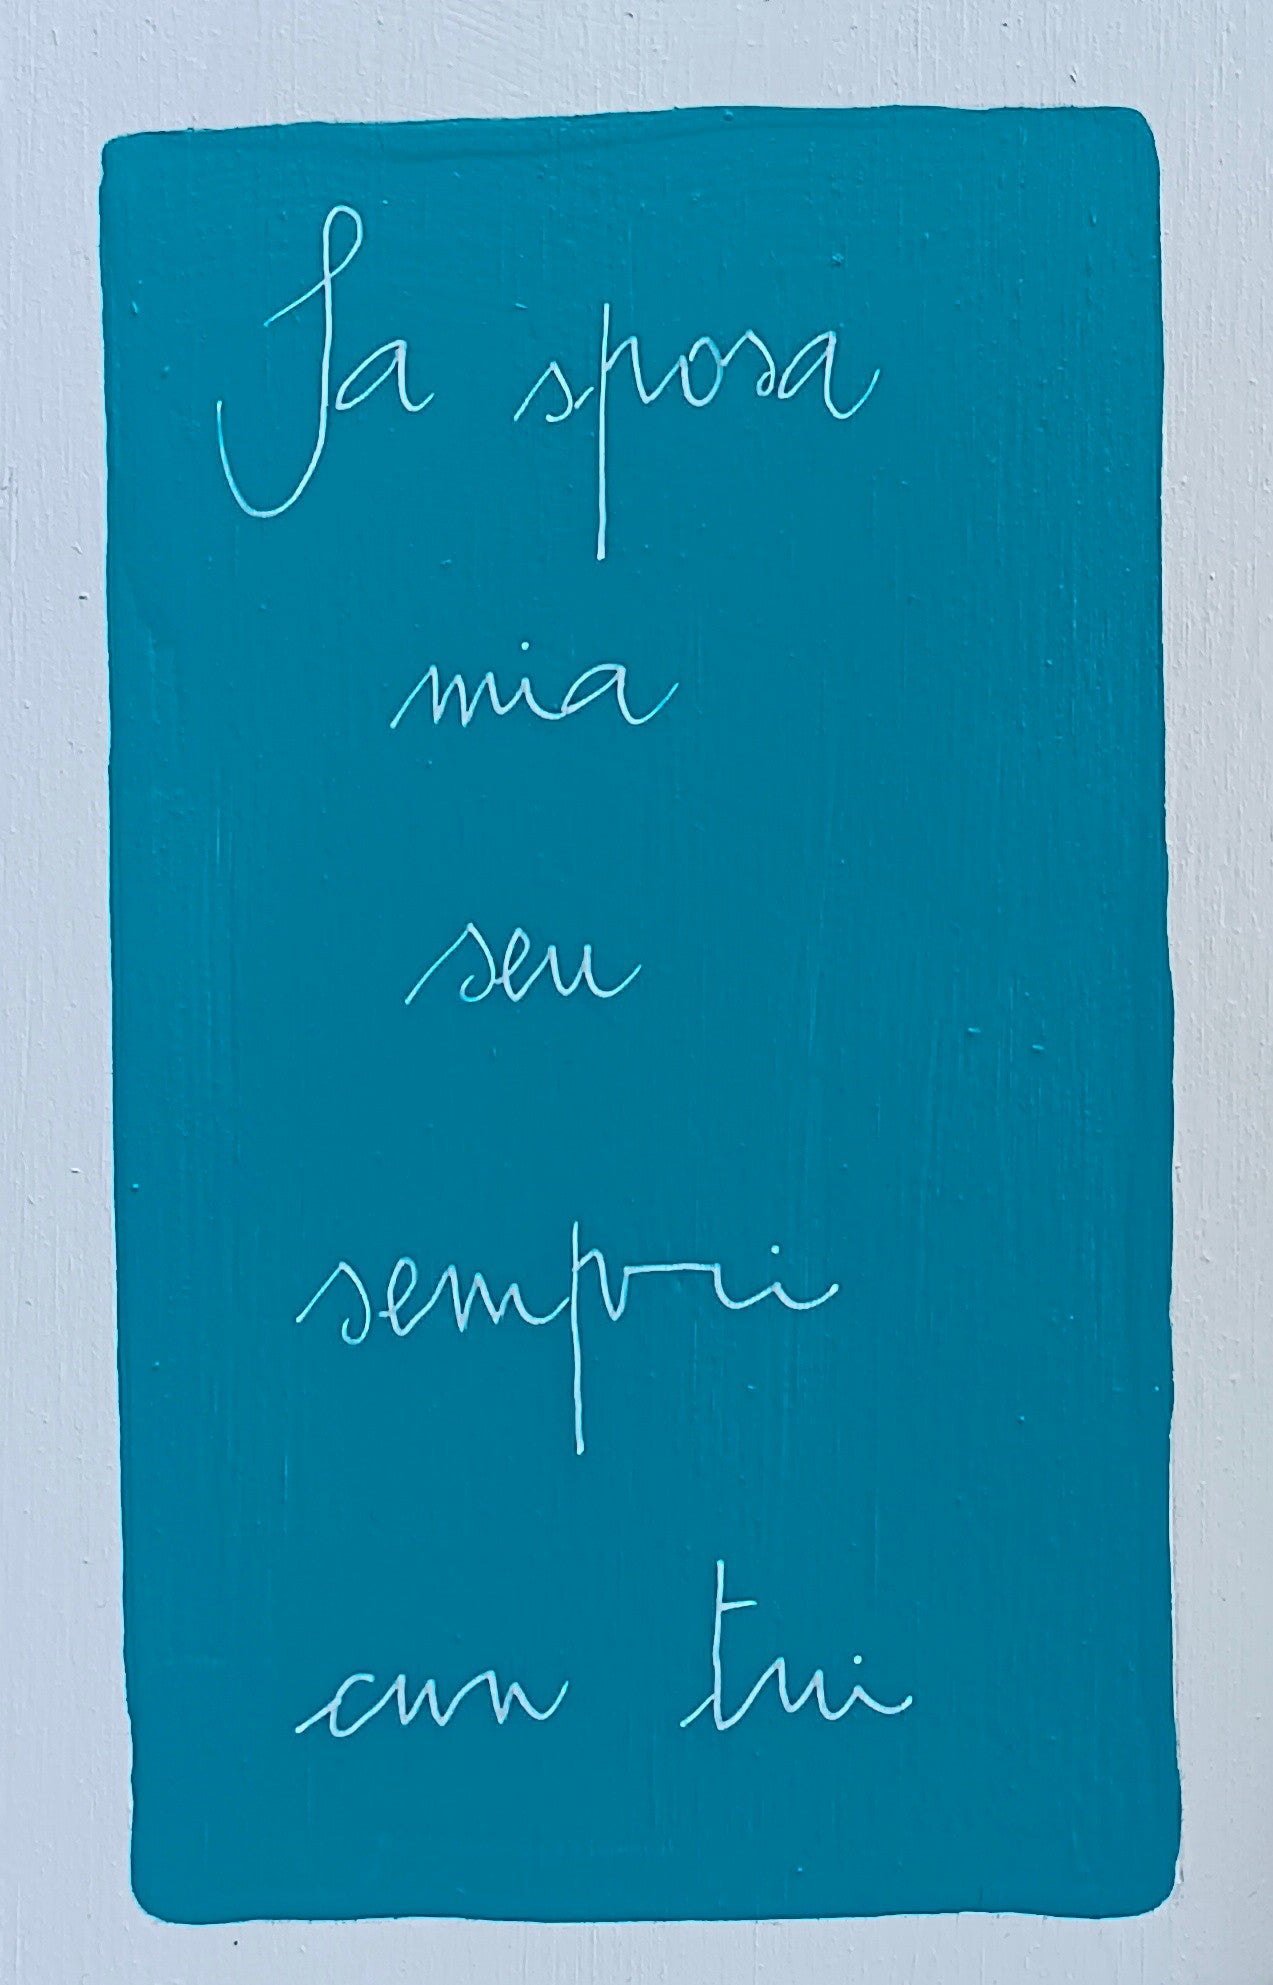 Sa sposa
mia
seu
sempri
cun tui